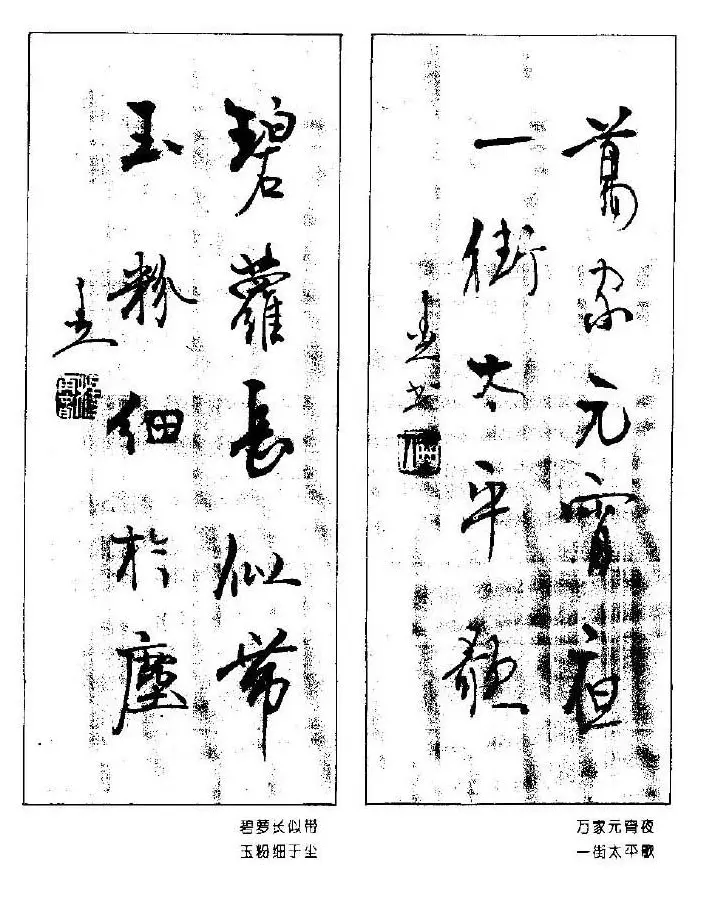 萬家元宵夜
一街太平歌
碧蘿長似帶
玉粉細於塵
万家元宵夜
一街太平歌
碧萝长似带
玉粉细于尘